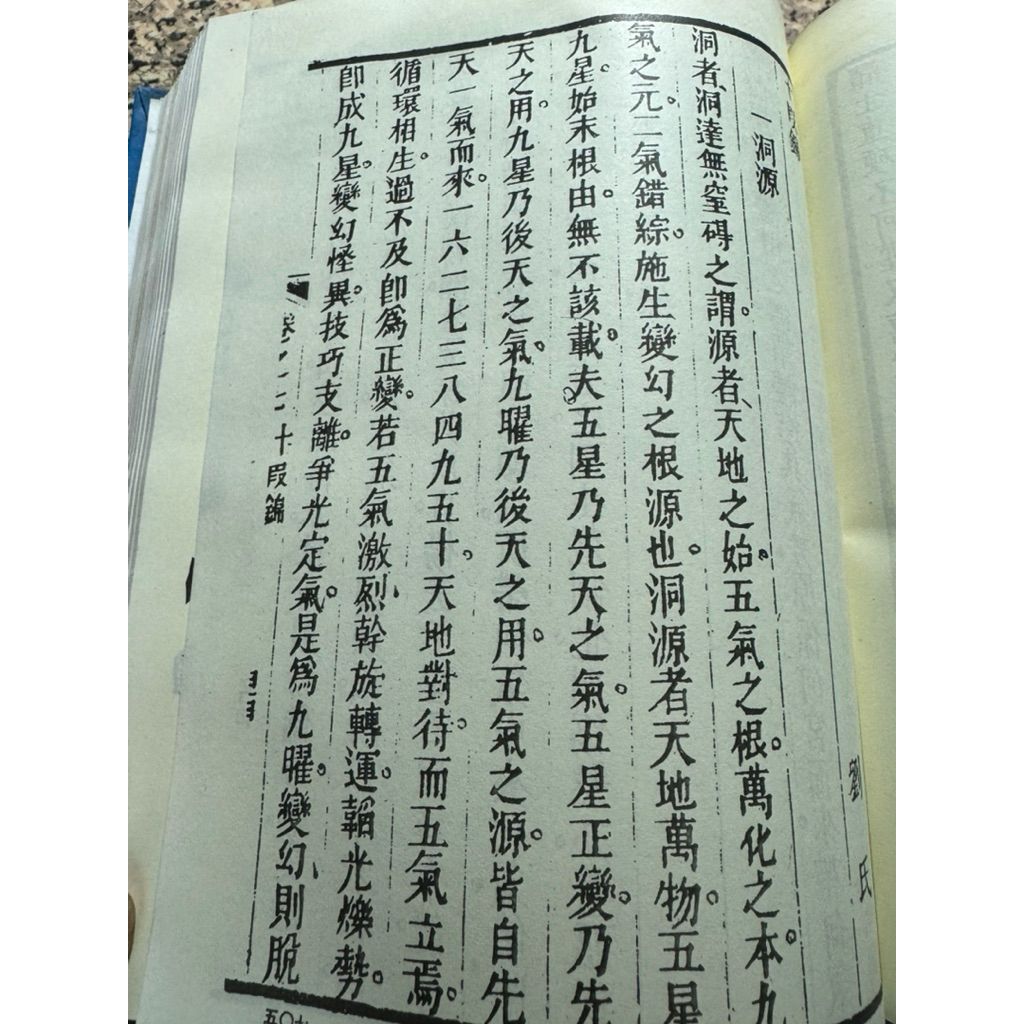 劉氏
一洞源
洞者、洞達無窒碍之謂。源者、天地之始。五氣之根。萬化之本。九
氣之元。二氣錯綜。施生變幻之根源也。洞源者天地萬物。五星
九星。始末根由。無不該載。夫五星乃先天之氣。五星正變。乃先
天之用。九星乃後天之氣。九曜乃後天之用。五氣之源。皆自先
天一氣而來。一六二七三八四九五十。天地對待。而五氣立焉。
循環相生。過不及卽爲正變。若五氣激烈、幹旋轉運。韜光爍勢。
卽成九星。變幻怪異。技巧支離。爭光定氣。是爲九曜。變幻、則脫
二十段錦